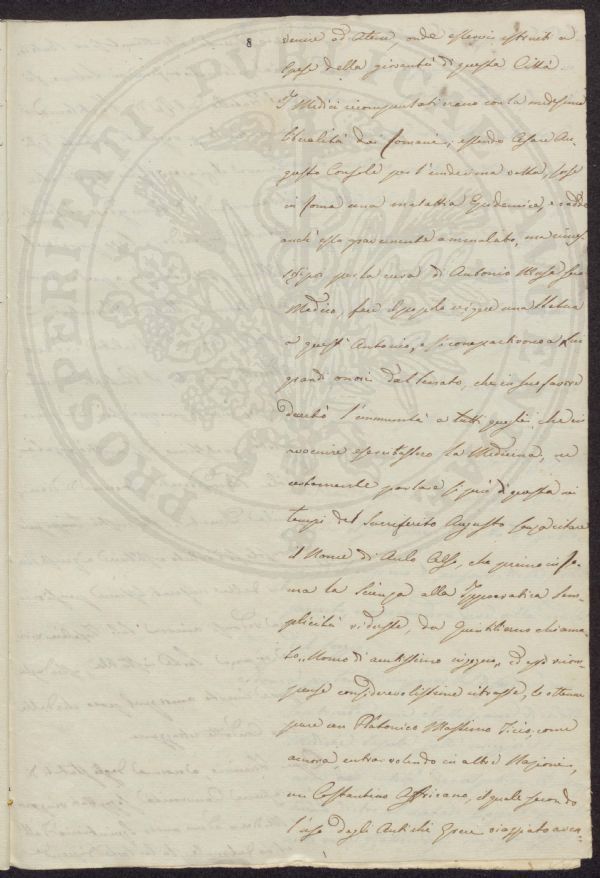 8
venire ad Atene, onde esservi istruiti a
spese della gioventù di questa Città.
I Medici ricompensati erano con la medesima
liberalità dai Romani; essendo Cesare Au-
gusto Console per l'undecima volta, fuvi
in Roma una malattia Epidemica, e cadde
anch'esso gravemente ammalato, ma
per la cura di Antonio Musa suo
Medico, fece il popolo erigere una Statua
a questi Antonio, e si compartirono a lui
grandi onori dal Senato, che in suo favore
decretò l'immunità a tutti quegli, che in
avvenire esercitassero la Medicina, ne
certamente parlare si può di questa ai
tempi del Surriferito Augusto senza citare
il Nome di Aulo Celso, che primo in Ro-
ma la Scienza alla Ippocratica Sem-
plicità ridusse, da Quintiliano chiama-
to „Uomo di acutissimo ingegno„ ed esso ricom-
pense considerevolissime ritrasse, le ottenne
pure un Platonico Massimo Tirio, come
ancora entrar volendo in altre Nazioni,
un Costantino Affricano, il quale secondo
l'uso degli Antichi
PROSPERITATI PUBLICAE